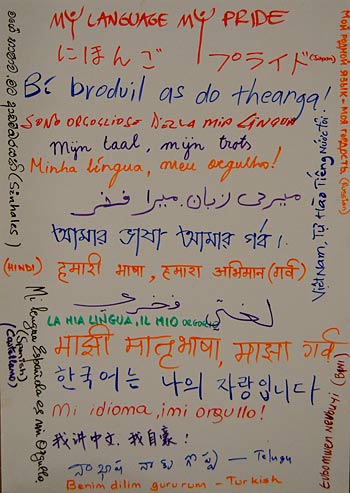 MY LANGUAGE MY PRIDE
にほんご プライド (Japan)
Bí bródúil as do theanga!
SONO ORGOGLIOSO DELLA MIA LINGUA
Mijn taal, mijn trots
Minha língua, meu orgulho!
میری زبان. میرا فخر
আমার ভাষা আমার গর্ব।
(HINDI) हमारी भाषा, हमारा अभिमान (गर्व)
لغتي فخري
LA MIA LINGUA, IL MIO ORGOGLIO
माझी मातृभाषा, माझा गर्व
한국어는 나의 자랑입니다
Mi idioma, ¡mi orgullo!
我讲中文, 我自豪!
నా భాష నాకు గొప్ప — Telugu
Benim dilim gururum - Turkish
(Sinhales)
Mi lengua Española es mi Orgullo
(Spanish)
(Castellano)
Мой родной язык - моя гордость (Russian)
Việt Nam, Tự Hào Tiếng Nước Tôi.
(Bini)